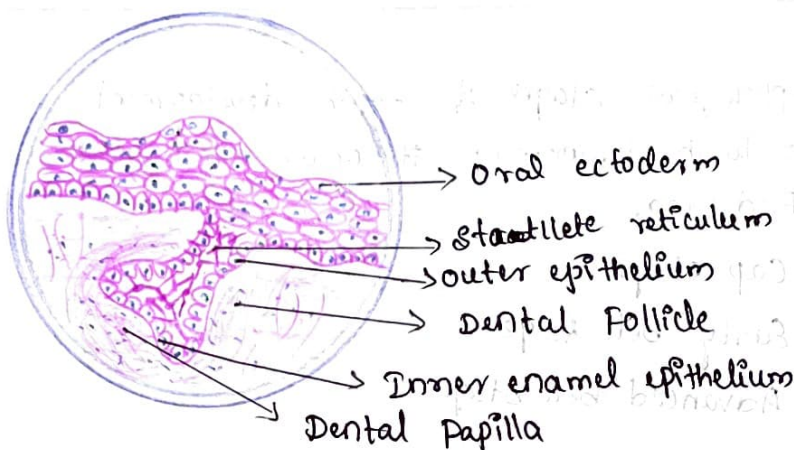 Oral ectoderm
reticulum
outer epithelium
Dental Follicle
Inner enamel epithelium
Dental Papilla